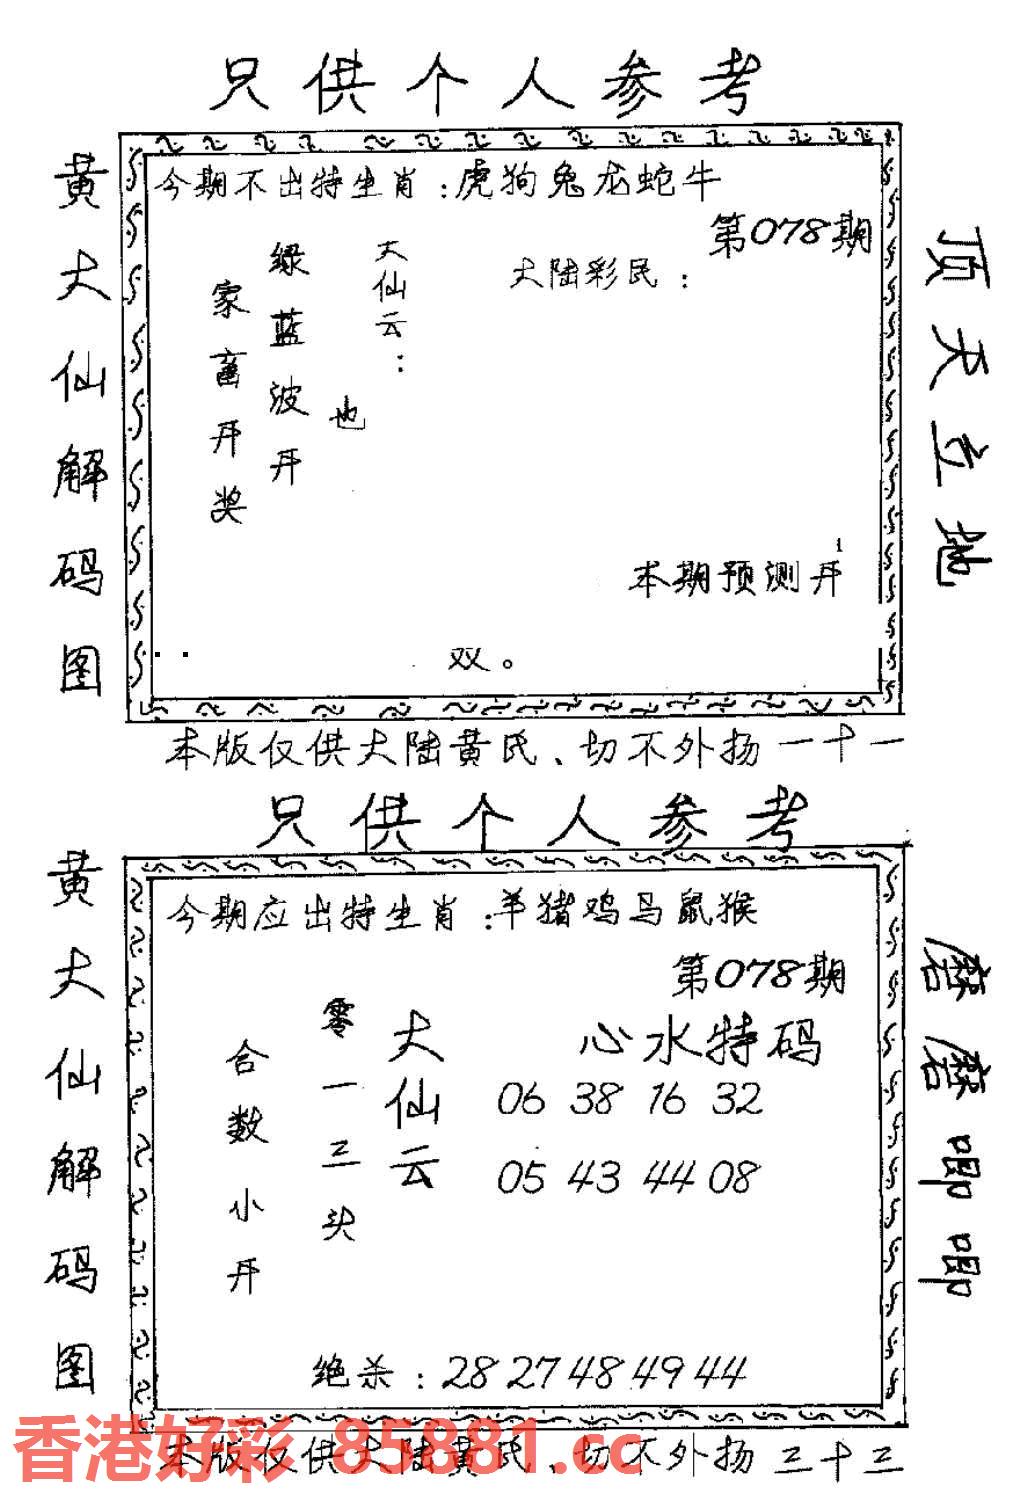 只供个人参考
黄大仙解码图
今期不出特生肖：虎狗兔龙蛇牛
第078期
大陆彩民：
大仙云：
绿蓝波开
也
家畜开奖
本期预测开
双。
顶天立地
本版仅供大陆黄氏、切不外扬一十一
只供个人参考
黄大仙解码图
今期应出特生肖：羊猪鸡马鼠猴
第078期
心水特码
06 38 16 32
05 43 44 08
大仙云
零一三头
合数小开
绝杀：28 27 48 49 44
磨磨唧唧
香港好彩 85881.cc
本版仅供大陆黄氏、切不外扬三十三